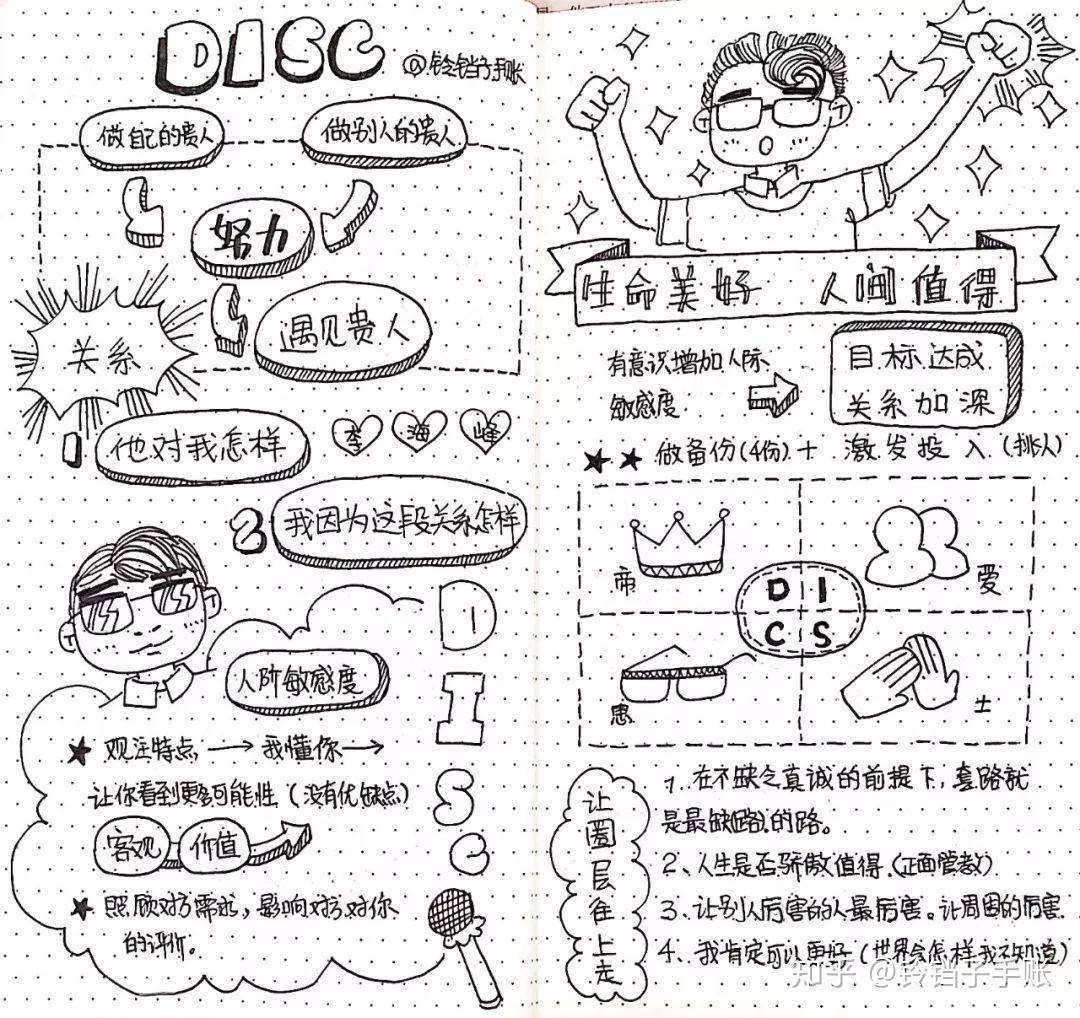 DISC
@铃铛子手账
做自己的贵人
做别人的贵人
努力
遇见贵人
关系
1 他对我怎样
李 海 峰
2 我因为这段关系怎样
人阶敏感度
★ 观注特点 → 我懂你 →
让你看到更多可能性(没有优缺点)
客观 价值
★ 照顾对方需求,影响对方对你
的评价。
D
I
S
C
生命美好 人间值得
有意识增加人际
敏感度
目标达成
关系加深
★★ 做备份(4份) + 激发投入(挑人)
帝
爱
D I
C S
思
士
让圈层往上走
1、在不缺乏真诚的前提下,套路就
是最缺的路。
2、人生是否骄傲值得(正面管教)
3、让别人厉害的人最厉害。让周围的厉害.
4、我肯定可以更好(世界会怎样我不知道)
知乎 @铃铛子手账